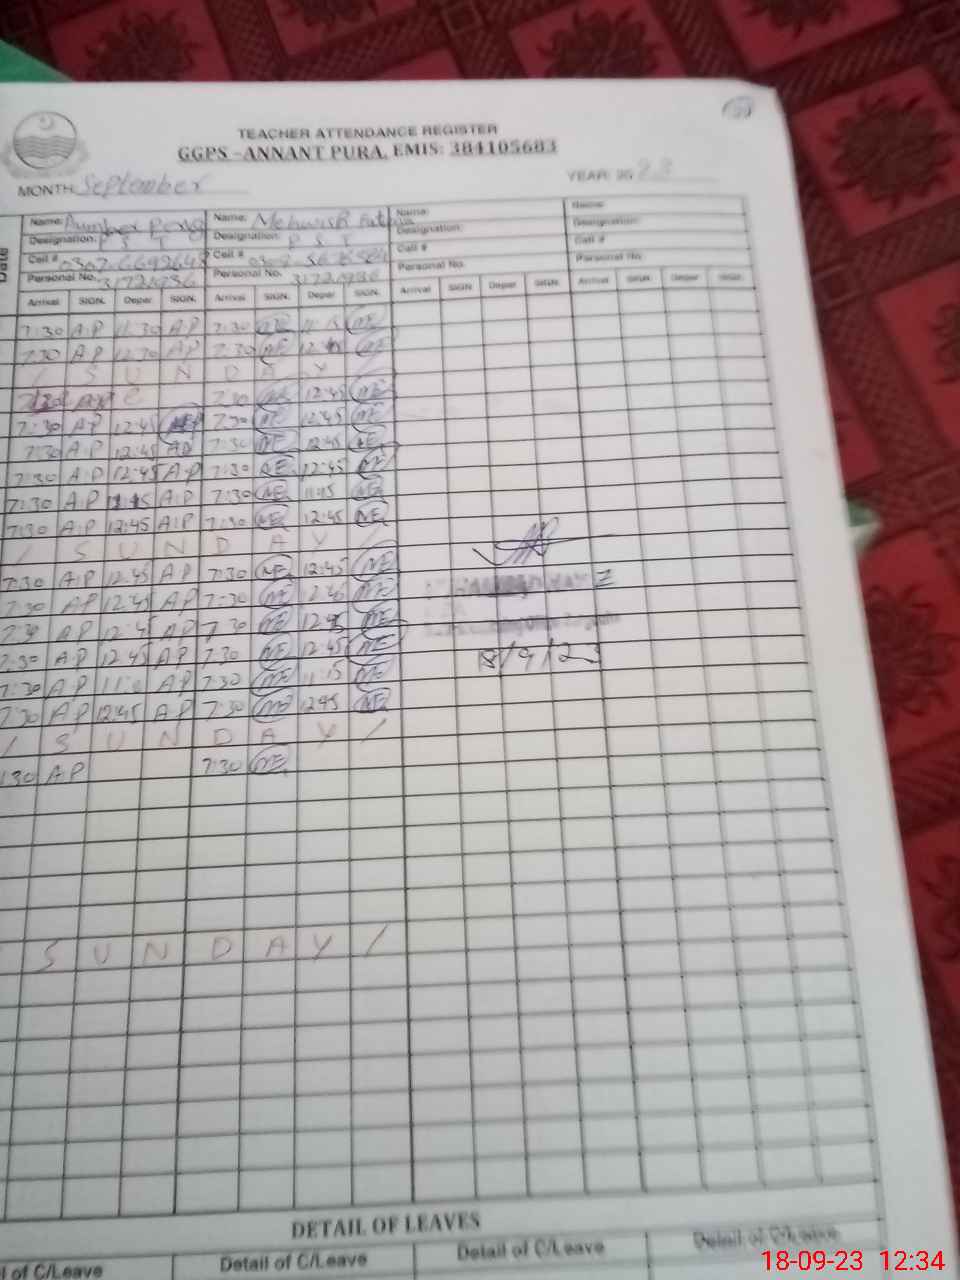 TEACHER ATTENDANCE REGISTER
GGPS -ANNANT PURA, EMIS: 384105683
MONTH: September YEAR: 20 23
Name: Name: Mehwish Name: Name:
Designation: P S T Designation: P S T Designation: Designation:
Cell # Cell # Cell # Cell #
Personal No. Personal No. Personal No. Personal No.
Date Arrival SIGN. Depar SIGN. Arrival SIGN. Depar SIGN. Arrival SIGN Depar SIGN. Arrival SIGN. Depar SIGN.
7:30 A.P 11:30 A.P 7:30 ME 11:15 ME
7:30 AP 12:30 AP 7:30 ME 12:45 ME
/ S U N D A Y /
7:30 AP 7:30 ME 12:45 ME
7:30 AP 12:45 7:30 ME 12:45 ME
7:30 A.P 12:45 AP 7:30 ME 12:45 ME
7:30 A.P 12:45 A.P 7:30 ME 12:45 ME
7:30 A.P 11:15 A.P 7:30 ME 11:15 ME
7:30 A.P 12:45 A.P 7:30 ME 12:45 ME
/ S U N D A Y /
7:30 A.P 12:45 AP 7:30 ME 12:45 ME
7:30 AP 12:45 AP 7:30 ME 12:45 ME
7:30 AP 12:45 AP 7:30 ME 12:45 ME
7:30 A.P 12:45 A.P 7:30 ME 12:45 ME
18/9/23
7:30 A.P AP 7:30 ME 11:15 ME
7:30 AP 12:45 AP 7:30 ME 12:45 ME
/ S U N D A Y /
7:30 AP 7:30 ME
S U N D A Y /
DETAIL OF LEAVES
l of C/Leave Detail of C/Leave Detail of C/Leave Detail of C/Leave
18-09-23 12:34